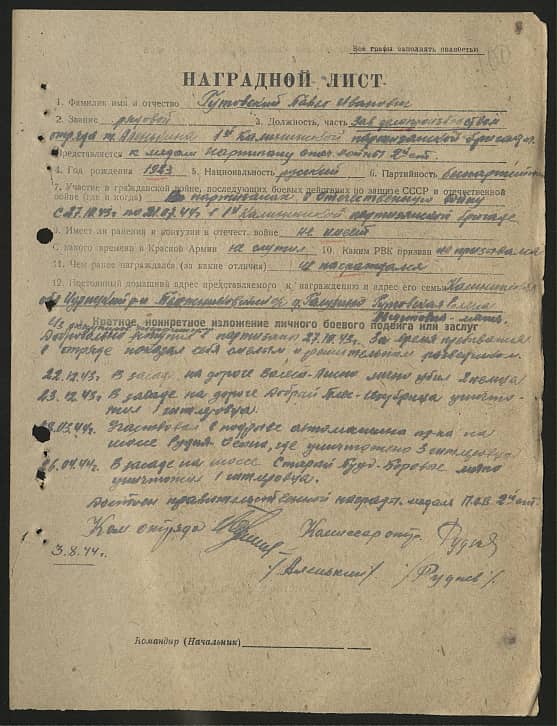 Все графы заполнять полностью
НАГРАДНОЙ ЛИСТ
1. Фамилия имя и отчество Гутовский Павел Иванович
2. Звание рядовой 3. Должность, часть Зав делопроизводством
отряда т. 1й Калининской партизанской бригады.
Представляется к медали партизану отеч. войны 2й ст.
4. Год рождения 1923 5. Национальность русский 6. Партийность беспартийн
7. Участие в гражданской войне, последующих боевых действиях по защите СССР и отечественной
войне (где и когда) В партизанах в отечественную войну
с 27.10.43г. по 21.07.44г. в 1й Калининской партизанской бригаде
8. Имеет ли ранения и контузии в отечест. войне не имеет
9. С какого времени в Красной Армии не служил 10. Каким РВК призван не призывался
11. Чем ранее награждался (за какие отличия) не награждался
12. Постоянный домашний адрес представляемого к награждению и адрес его семьи Калининская
обл р-н д. Гутовская Елена
мать.
Краткое, конкретное изложение личного боевого подвига или заслуг
Добровольно вступил в партизаны 27.10.43г. За время пребывания
в отряде показал себя смелым и решительным разведчиком.
22.12.43г. В засаде на дороге лично убил 2 немца
23.12.43г. В засаде на дороге уничто-
жил 1 гитлеровца.
28.03.44г. Участвовал в подрыве автомашины пр-ка на
шоссе Рудня - , где уничтожено 3 гитлеровца
26.04.44г. В засаде на шоссе Старая Буда - Боровое лично
уничтожил 1 гитлеровца.
Достоин правительственной награды медаль П.О.В. 2й ст.
Ком отряда Комиссар отр.
3.8.44г. /Аленький/ /Руднев/.
Командир (Начальник)